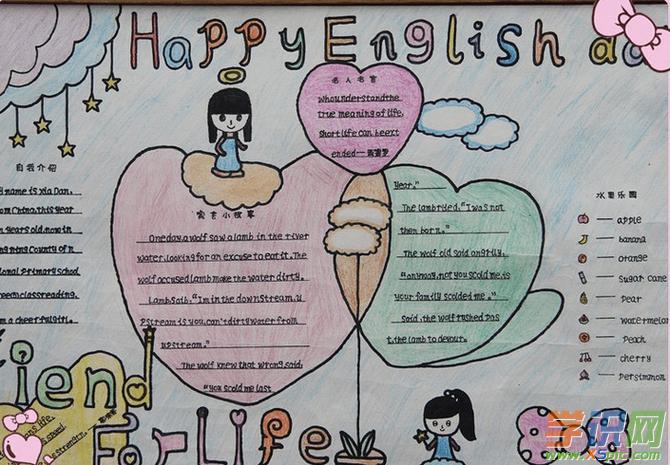 Happy English
名人名言
Who understand the
true meaning of life,
short life can be ext
ended—
自我介绍
name is Xia Dan.
om China, this year
n years old, now in
County of n
ional primary school
m a cheerful girl.
寓言小故事
One day a wolf saw a lamb in the river
water, looking for an excuse to eat it. The
wolf accused lamb make the water dirty.
Lamb Saib: "Im in the downstream, u
pstream is you, can't dirty water from
upstream."
The wolf knew that wrong, said,
"you scold me last
year."
The lamb ried, "I was not
then born."
The wolf old said angrily,
"anyway, not you scold me, is
your family scolded me."
Said, the wolf rushed pas
t, the lamb to devour.
水果乐园
— apple
— banana
— orange
— sugar cane
— pear
— watermelon
— peach
— cherry
— persimmon
iend
For Life
学识网
www.xspic.com